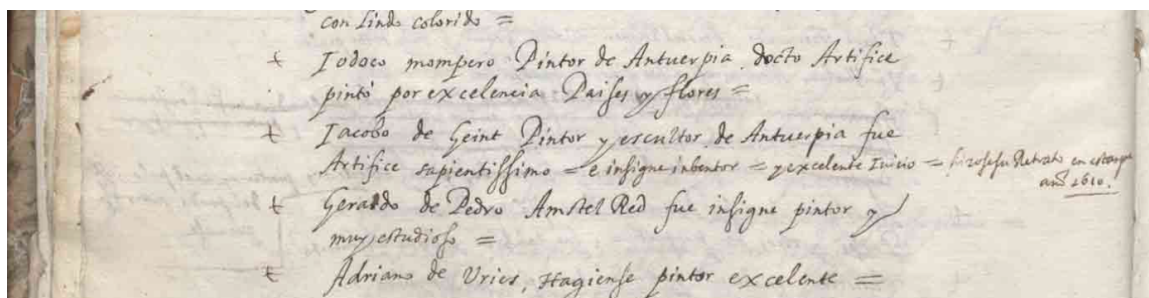 con Lindo colorido =
+ Iodoco mompero Pintor de Antuerpia docto Artifice
pintó por excelencia Paises y flores =
+ Iacobo de Geint Pintor y escultor de Antuerpia fue
Artifice sapientissimo = e insigne inbentor = y excelente Iuicio = hizose su Retrato en estampa
año 1610.
+ Geraldo de Pedro Amstel Red fue insigne pintor y
muy estudioso =
+ Adriano de Vries, Hagiense pintor excelente =